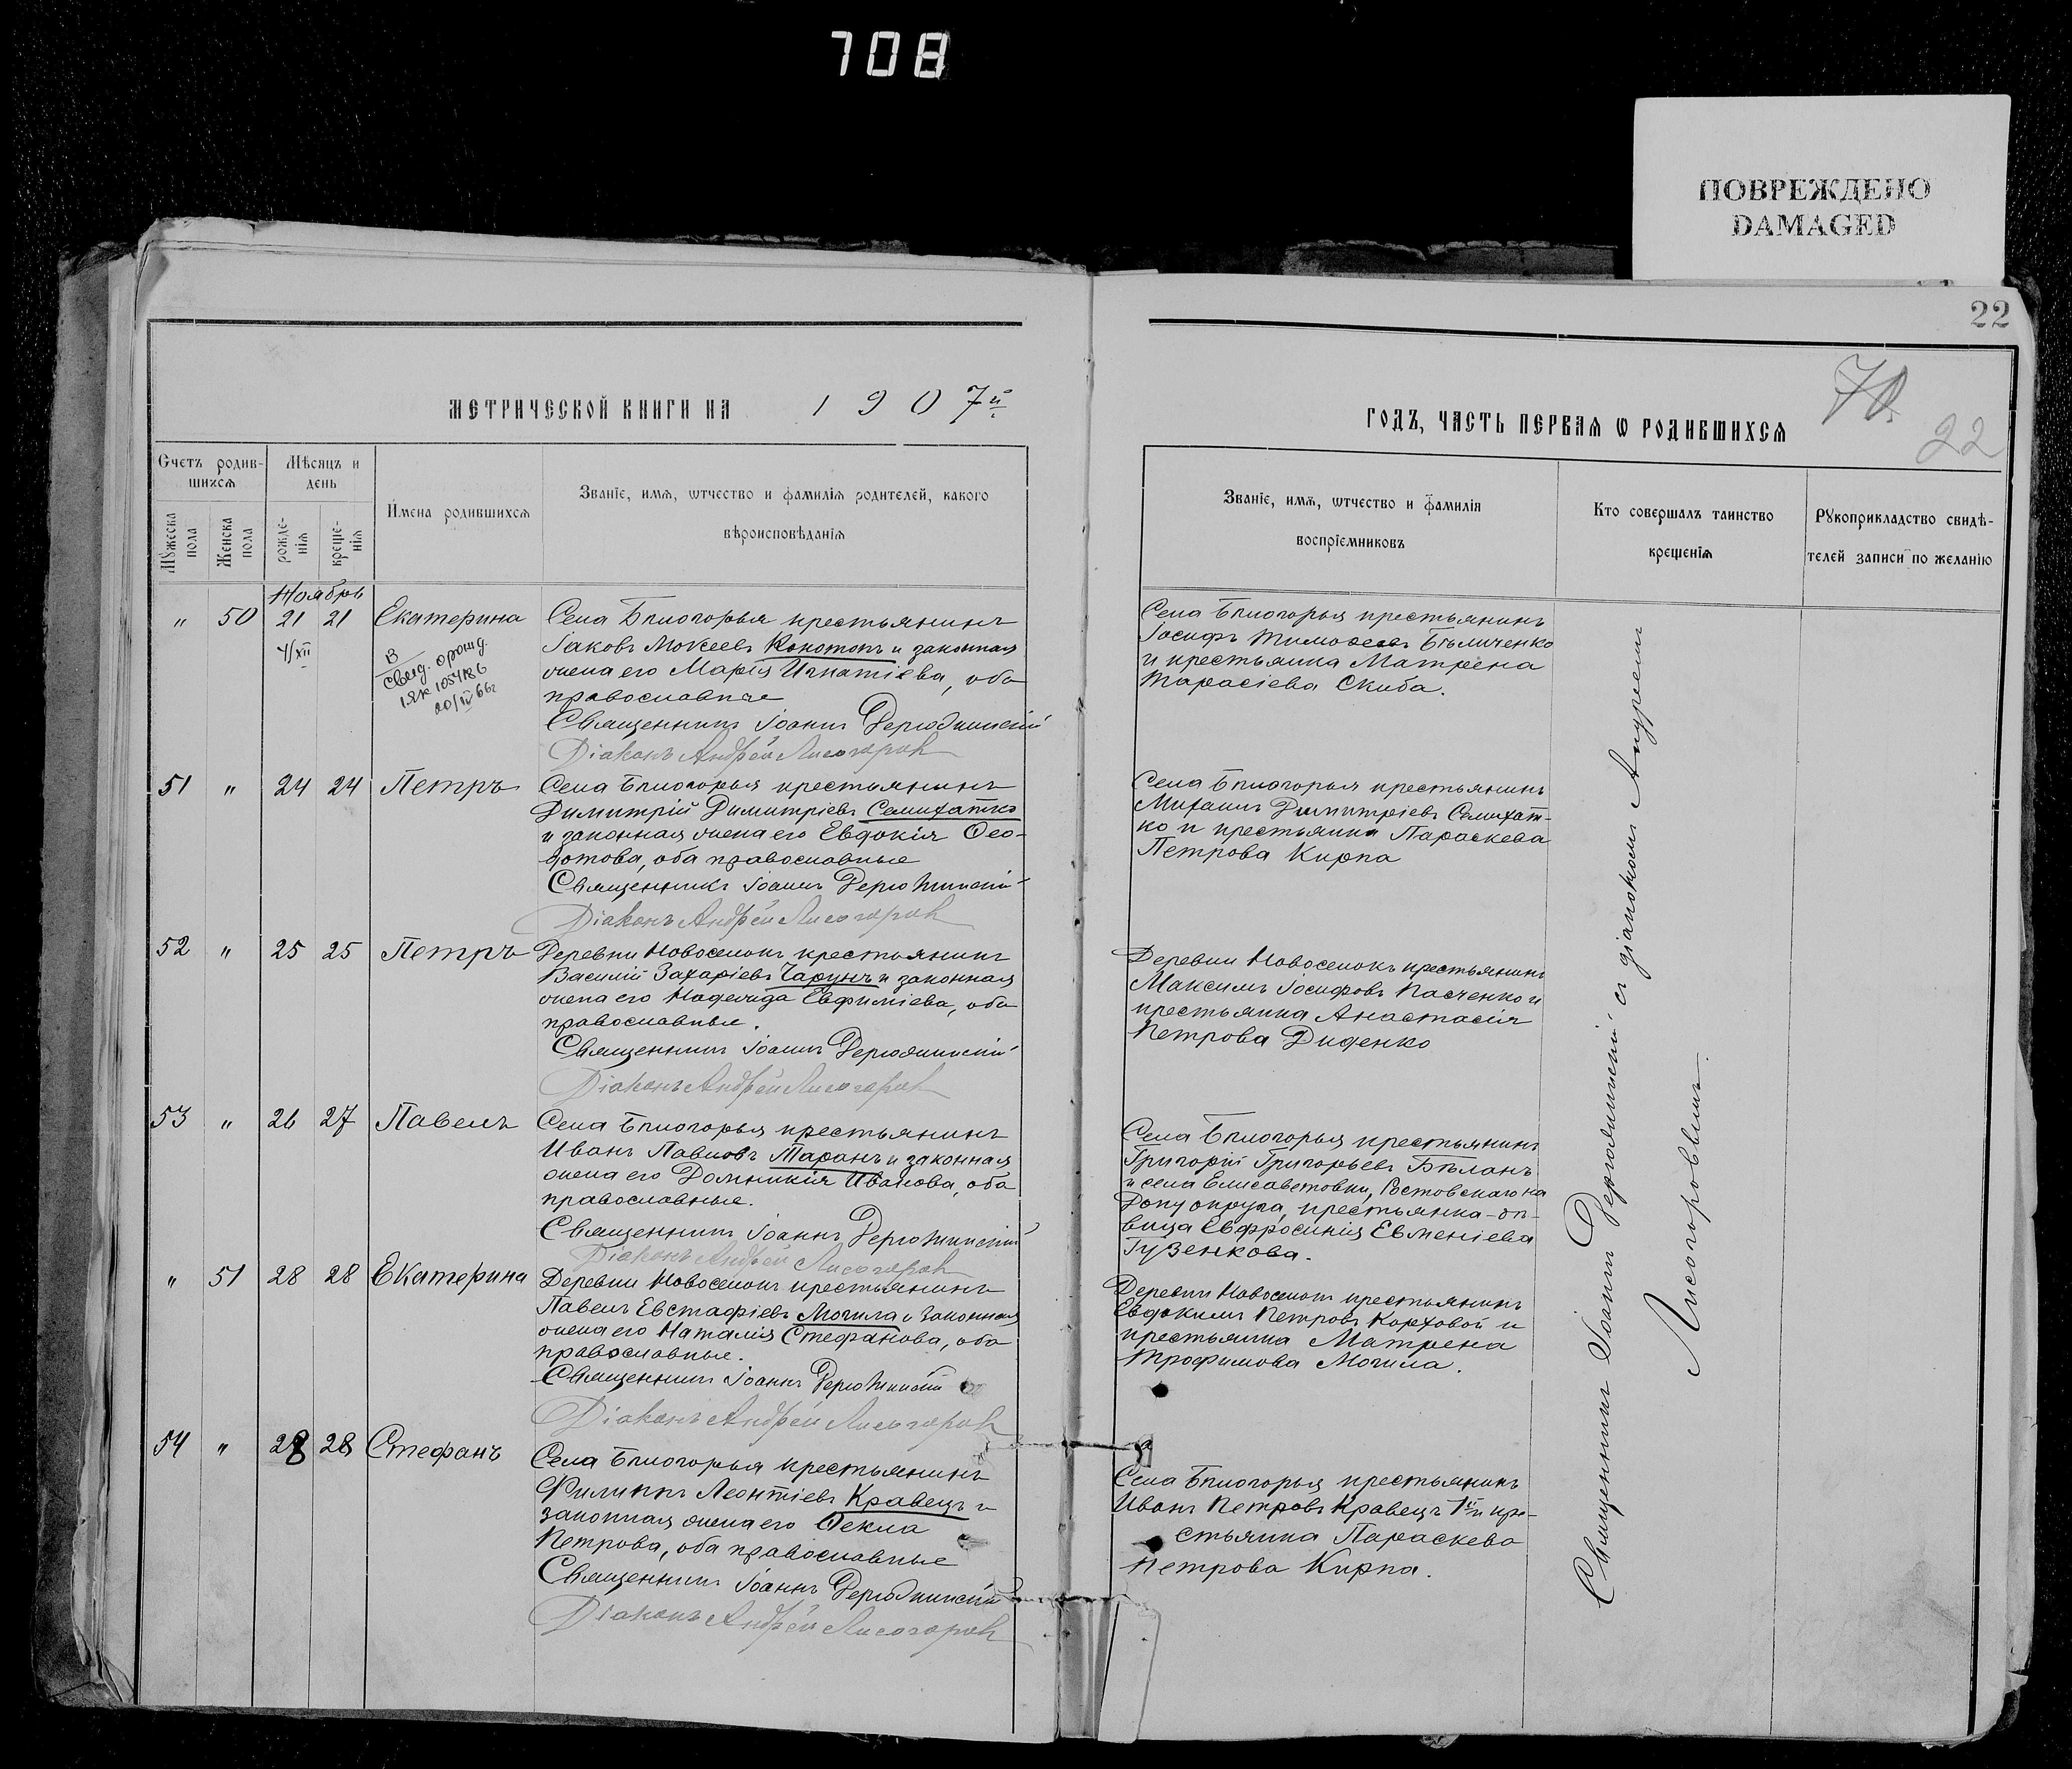 708
ПОВРЕЖДЕНО
DAMAGED
22
70
22
МЕТРИЧЕСКОЙ КНИГИ НА 1907й
ГОДЪ, ЧАСТЬ ПЕРВАЯ Ѡ РОДИВШИХСЯ
Счетъ родив-
шихся
Мѣсяцъ и
день
Мужеска
пола
Женска
пола
рожде-
нія
креще-
нія
Имена родившихся
Званіе, имя, ѡтчество и фамилія родителей, какого
вѣроисповѣданія
Званіе, имя, ѡтчество и фамилія
воспріемниковъ
Кто совершалъ таинство
крещенія
Рꙋкоприкладство свидѣ-
телей записи по желанію
Ноябрь
" 50 21 21 Екатерина
4/XII
В
свид. о рожд.
1ЯК 1054186
20/IV 66г
Села Блогорья крестьянинъ
Іаковъ Мокеевъ Конотопъ и законная
жена его Марія Игнатіева, оба
православные
Священникъ Іоаннъ Дерюжинскій
Діаконъ Андрей Лисогоровъ
Села Блогорья крестьянинъ
Іосифъ Тимоѳеевъ Бѣличенко
и крестьянка Матрена
Тарасіева Скиба.
51 " 24 24 Петръ
Села Блогорья крестьянинъ
Димитрій Димитріевъ Семихатко
и законная жена его Евдокія Ѳео-
дотова, оба православные
Священникъ Іоаннъ Дерюжинскій
Діаконъ Андрей Лисогоровъ
Села Блогорья крестьянинъ
Михаилъ Димитріевъ Семихат-
ко и крестьянка Параскева
Петрова Кирпа
52 " 25 25 Петръ
Деревни Новоселокъ крестьянинъ
Василій Захаріевъ Чарунъ и законная
жена его Надежда Евфиміева, оба
православные.
Священникъ Іоаннъ Дерюжинскій
Діаконъ Андрей Лисогоровъ
Деревни Новоселокъ крестьянинъ
Максимъ Іосифовъ Пасченко и
крестьянка Анастасія
Петрова Диденко
53 " 26 27 Павелъ
Села Блогорья крестьянинъ
Иванъ Павловъ Таранъ и законная
жена его Домникія Иванова, оба
православные.
Священникъ Іоаннъ Дерюжинскій
Діаконъ Андрей Лисогоровъ
Села Блогорья крестьянинъ
Григорій Григорьевъ Бѣланъ
и села Елисаветовки, Ростовскаго на
Дону округа, крестьянка-дѣ-
вица Евфросинія Евменіева
Гузенкова.
" 51 28 28 Екатерина
Деревни Новоселокъ крестьянинъ
Павелъ Евстафіевъ Могила и законная
жена его Наталія Стефанова, оба
православные.
Священникъ Іоаннъ Дерюжинскій
Діаконъ Андрей Лисогоровъ
Деревни Новоселокъ крестьянинъ
Евдокимъ Петровъ Корховой и
крестьянка Матрена
Трофимова Могила.
54 " 28 28 Стефанъ
Села Блогорья крестьянинъ
Филиппъ Леонтіевъ Кравецъ и
законная жена его Ѳекла
Петрова, оба православные
Священникъ Іоаннъ Дерюжинскій
Діаконъ Андрей Лисогоровъ
Села Блогорья крестьянинъ
Иванъ Петровъ Кравецъ 1й и кре-
стьянка Параскева
Петрова Кирпа.
Священникъ Іоаннъ Дерюжинскій съ діакономъ Андреемъ
Лисогоровымъ.